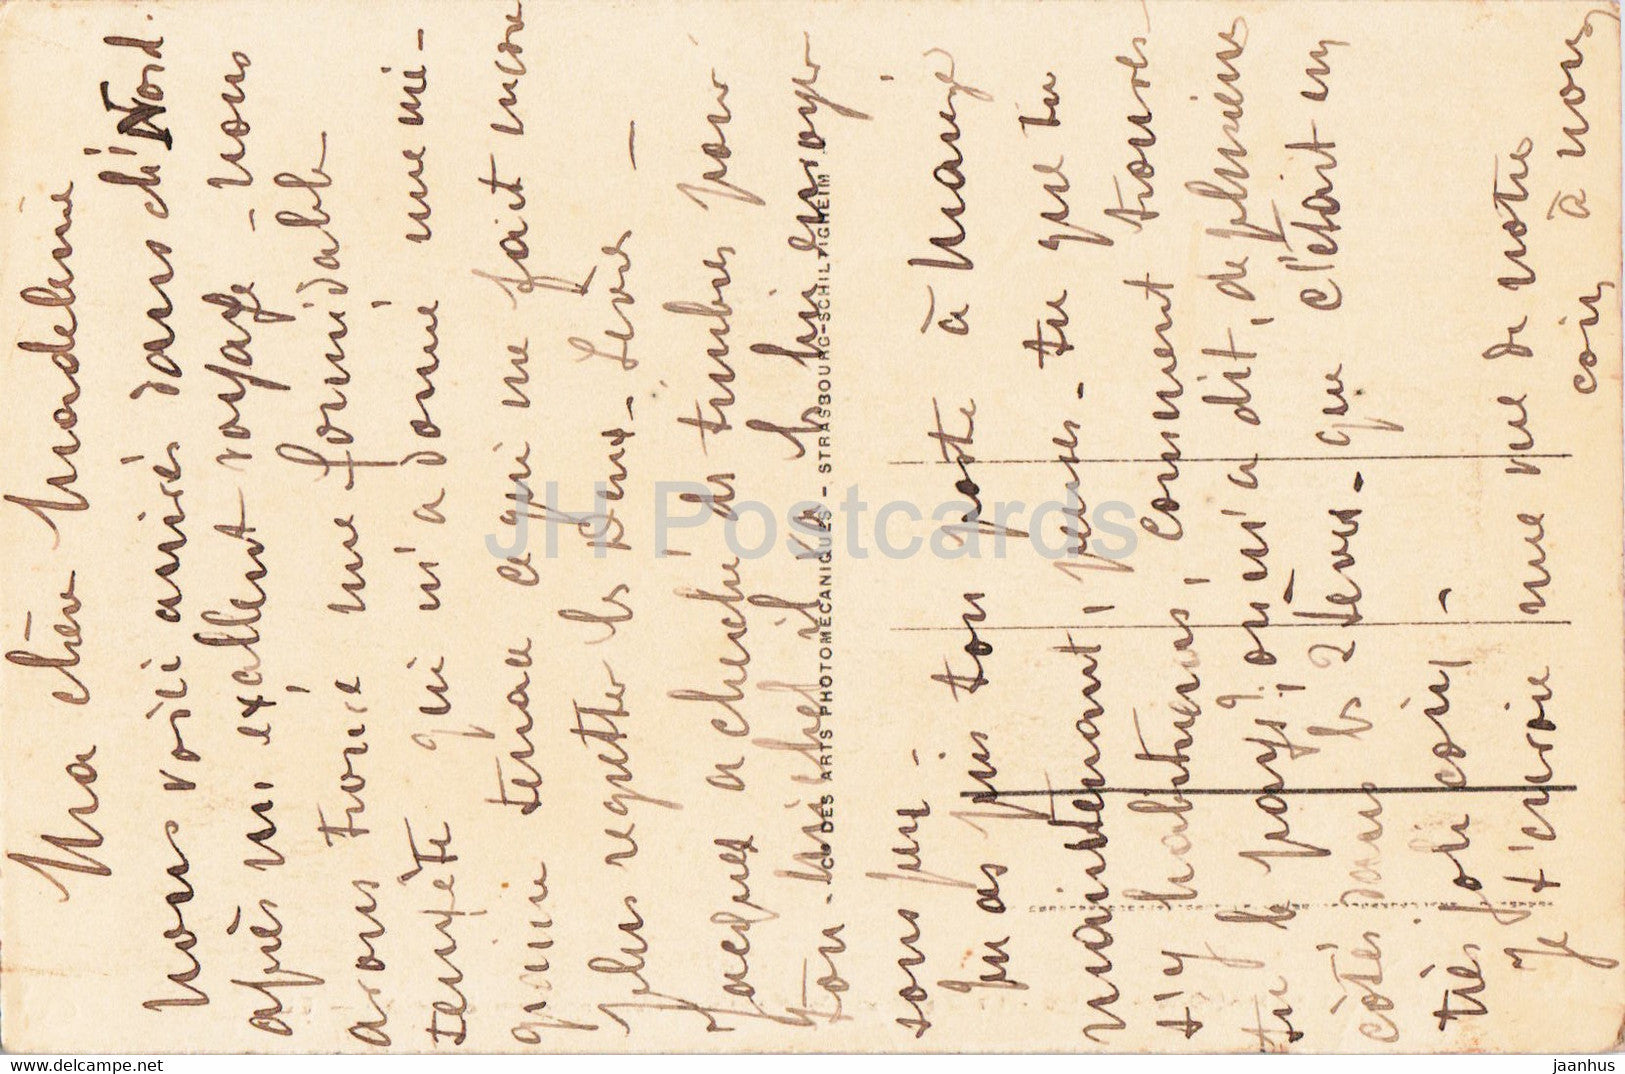 Ma chère Madeleine
nous voici arrivés dans ch'Nord.
après un excellent voyage - nous
avons trouvé une formidable
tempête qui m'a donné une mi-
graine tenace ce qui me fait encore
plus regretter les Deux-Sèvres -
Jacques a cherché des timbres pour
ton michel il va lui envoyer
sous peu -
Tu as pris ton poste à
maintenant, penses-tu que tu
t'y habitueras, comment trouves
tu le pays? on m'a dit, de plusieurs
côtés dans les 2 Sèvres - que c'était un
très joli coin, -
Je t'envoie une vue de notre
coin à nous
CIE DES ARTS PHOTOMECANIQUES - STRASBOURG-SCHILTIGHEIM
JH Postcards
https://www.hippostcard.com
jaanhus